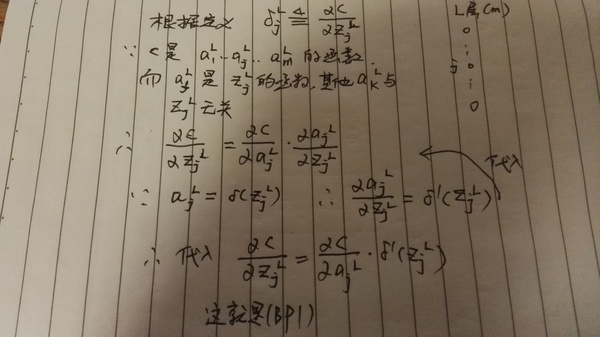 根据定义 δ_j^L ≜ ∂C/∂z_j^L
L层(m)
∵ C是 a_1^L..a_j^L..a_m^L 的函数.
而 a_j^L 是 z_j^L 的函数,其他 a_k^L 与
z_j^L 无关
j
∴ ∂C/∂z_j^L = ∂C/∂a_j^L · ∂a_j^L/∂z_j^L
代入
∵ a_j^L = δ(z_j^L) ∴ ∂a_j^L/∂z_j^L = δ'(z_j^L)
∴ 代入 ∂C/∂z_j^L = ∂C/∂a_j^L · δ'(z_j^L)
这就是(BP1)